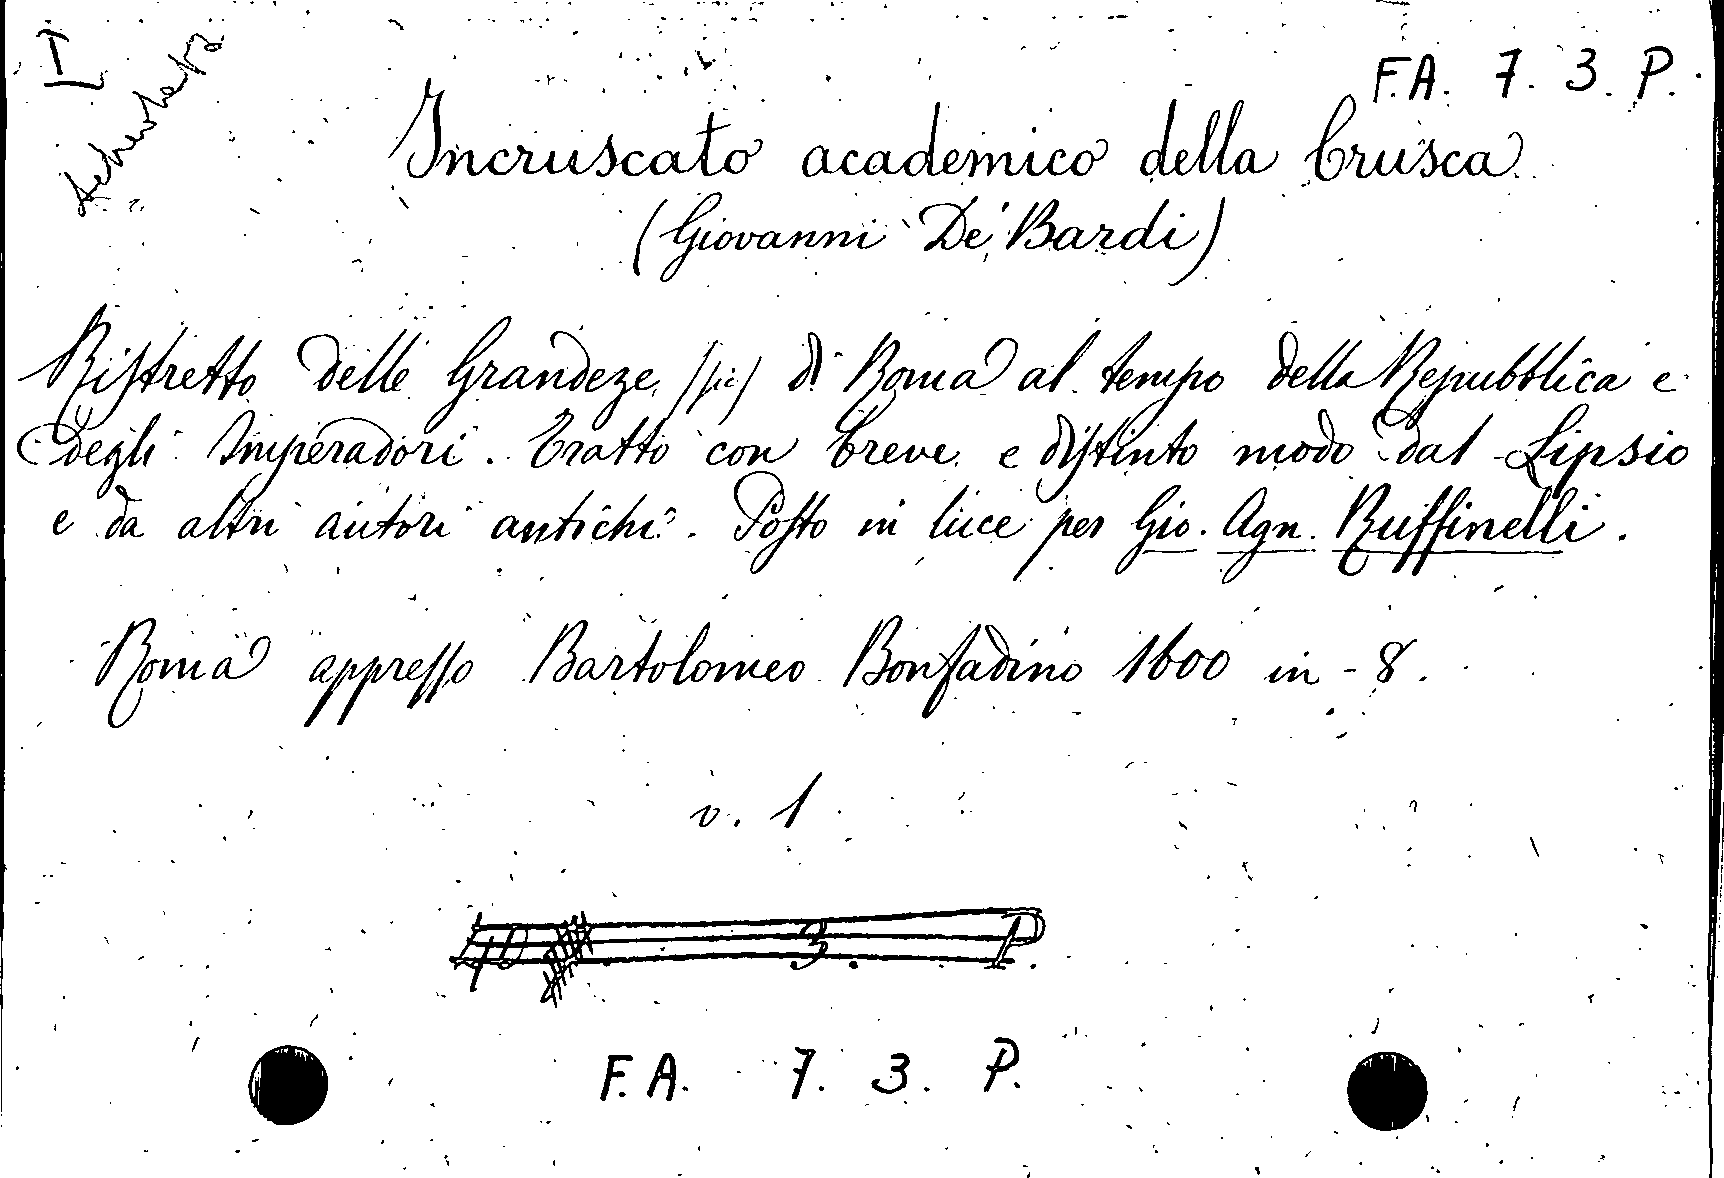 I
F.A. 7. 3. P.
Incruscato academico della Crusca
(Giovanni De' Bardi)
Ristretto delle Grandeze (sic) di Roma al tempo della Repubblica e
degli Imperadori. Tratto con breve e distinto modo dal Lipsio
e da altri autori antichi. Posto in luce per Gio. Agn. Ruffinelli.
Roma appresso Bartolomeo Bonfadino 1600 in-8.
v. 1
3. P.
F.A. 7. 3. P.